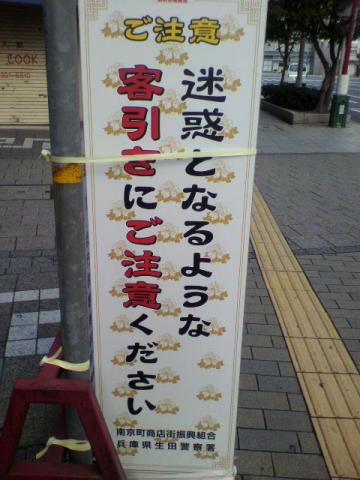 ご注意
迷惑となるような
客引きにご注意ください
南京町商店街振興組合
兵庫県生田警察署
LOOK